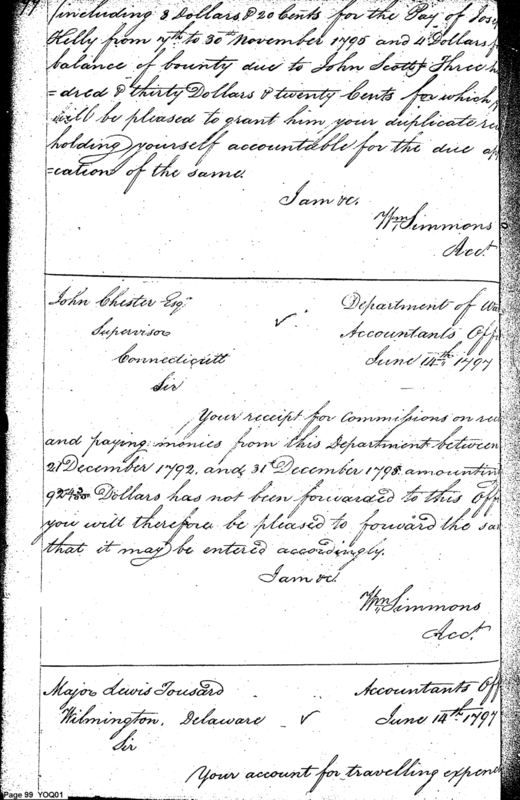 (including 8 Dollars & 20 Cents for the Pay of Jos
Kelly from 7th to 30th November 1795 and 4 Dollars
balance of bounty due to John Scott) Three h
=dred & thirty Dollars & twenty Cents for which
will be pleased to grant him your duplicate re
holding yourself accountable for the due ap
=cation of the same.
I am &c.
Wm Simmons
Acct
John Chester Esqr
Department of Wa
Supervisor
Accountants Off
Connecticutt
June 14th 1797
Sir
Your receipt for Commissions on re
and paying monies from this Department between
21 December 1792, and 31st December 1795 amountin
Dollars has not been forwarded to this Off
you will therefore be pleased to forward the sa
that it may be entered accordingly.
I am &c.
Wm Simmons
Acct
Major Lewis Tousard
Accountants Off
Wilmington, Delaware
June 14th 1797
Sir
Your account for travelling expen
Page 99 YOQ01